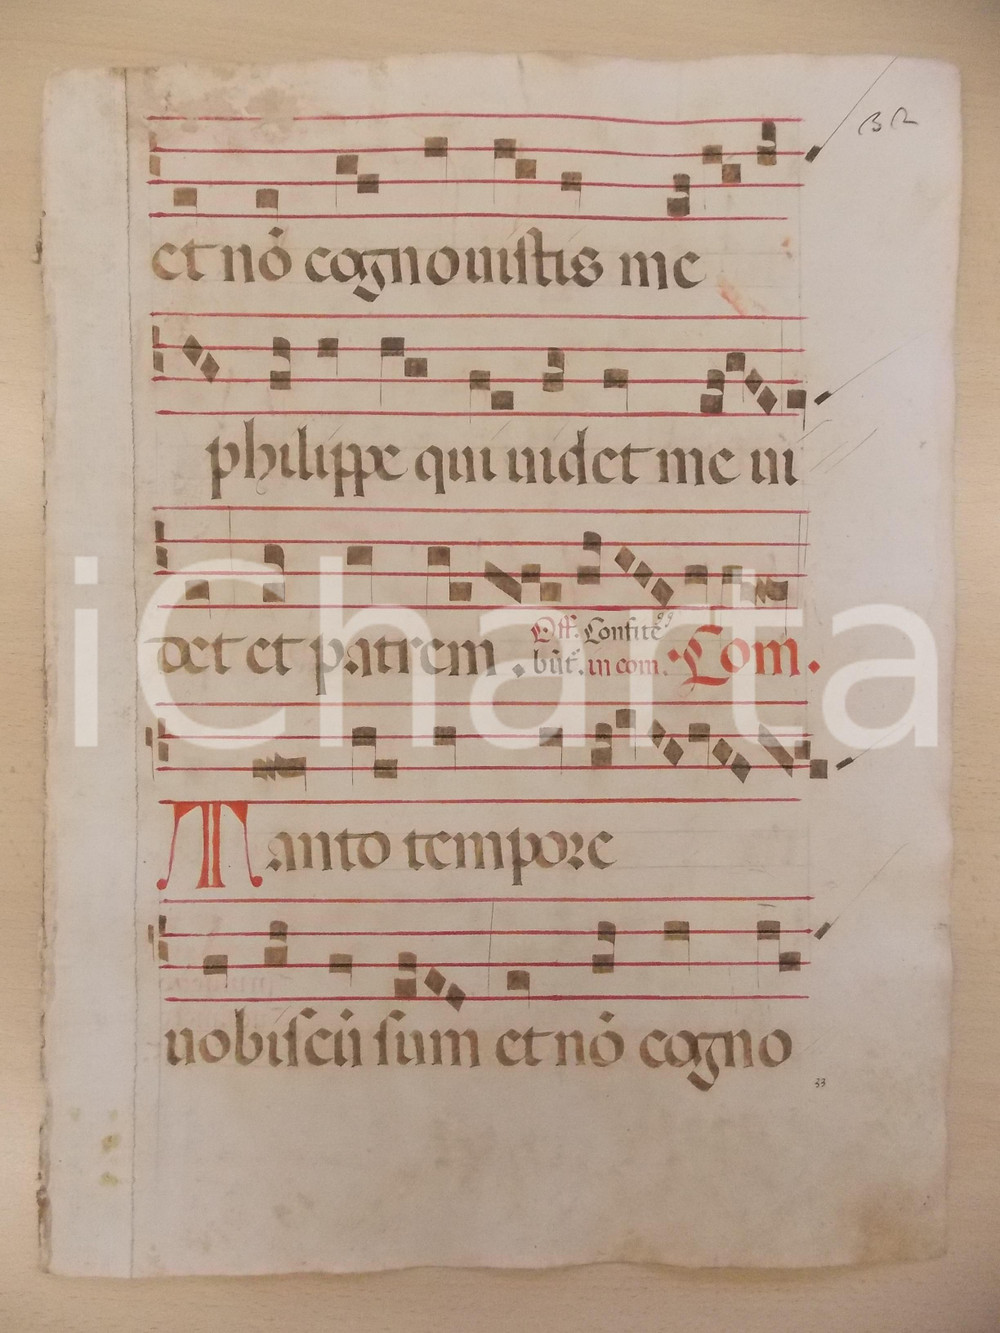 et nō cognouistis me
philippe qui uidet me ui
det et patrem. Off. Confite
būt. in com. Com.
Tanto tempore
uobiscū sum et nō cogno
33
iCharta